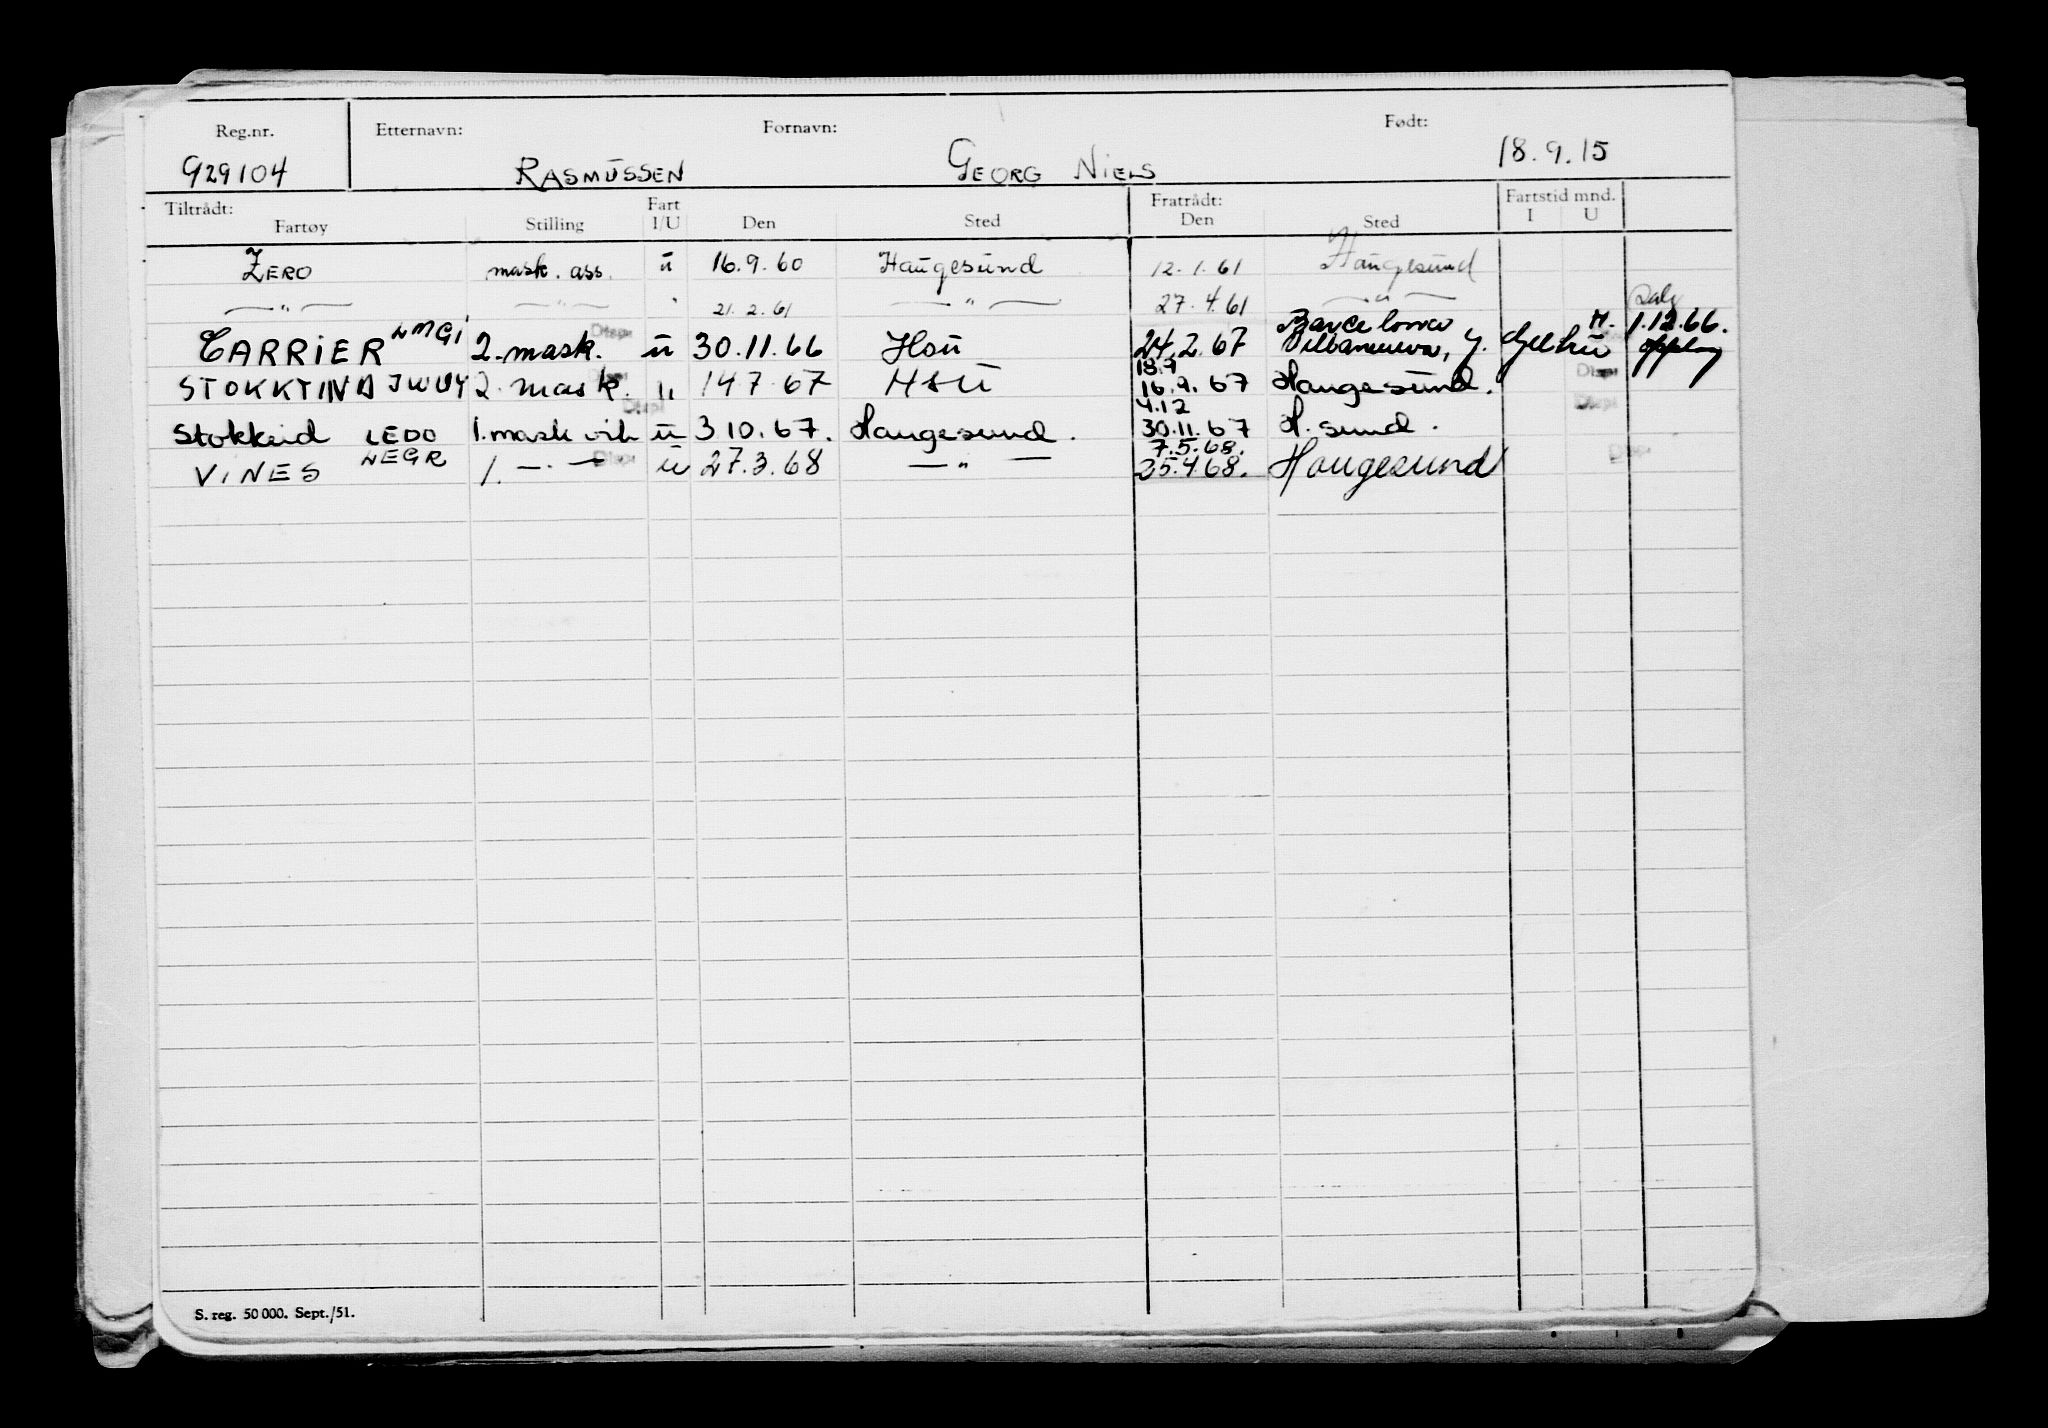 Reg.nr. Etternavn: Fornavn: Født:
929104 RASMUSSEN GEORG NIELS 18.9.15
Tiltrådt: Fratrådt: Fartstid mnd.
Fartøy Stilling Fart I/U Den Sted Den Sted I U
ZERO mask. ass. ū 16.9.60 Haugesund 12.1.61 Haugesund
— " — — " — " 21.2.61 — " — 27.4.61 — " —
CARRIER LMGI 2. mask. ū 30.11.66 Hsū 24.2.67 Barcelona 1.12.66.
STOKKTIND JWUY 2. mask. u 14 7 67 HSU 18.9 16.9.67 Haugesund.
Stokkeid LEDO 1. mask vik ū 3 10.67. Haugesund. 4.12 30.11.67 H. sund.
VINES LEGR 1. — . — ū 27.3.68 — " — 7.5.68. 25.4.68. Haugesund
S. reg. 50 000. Sept./51.